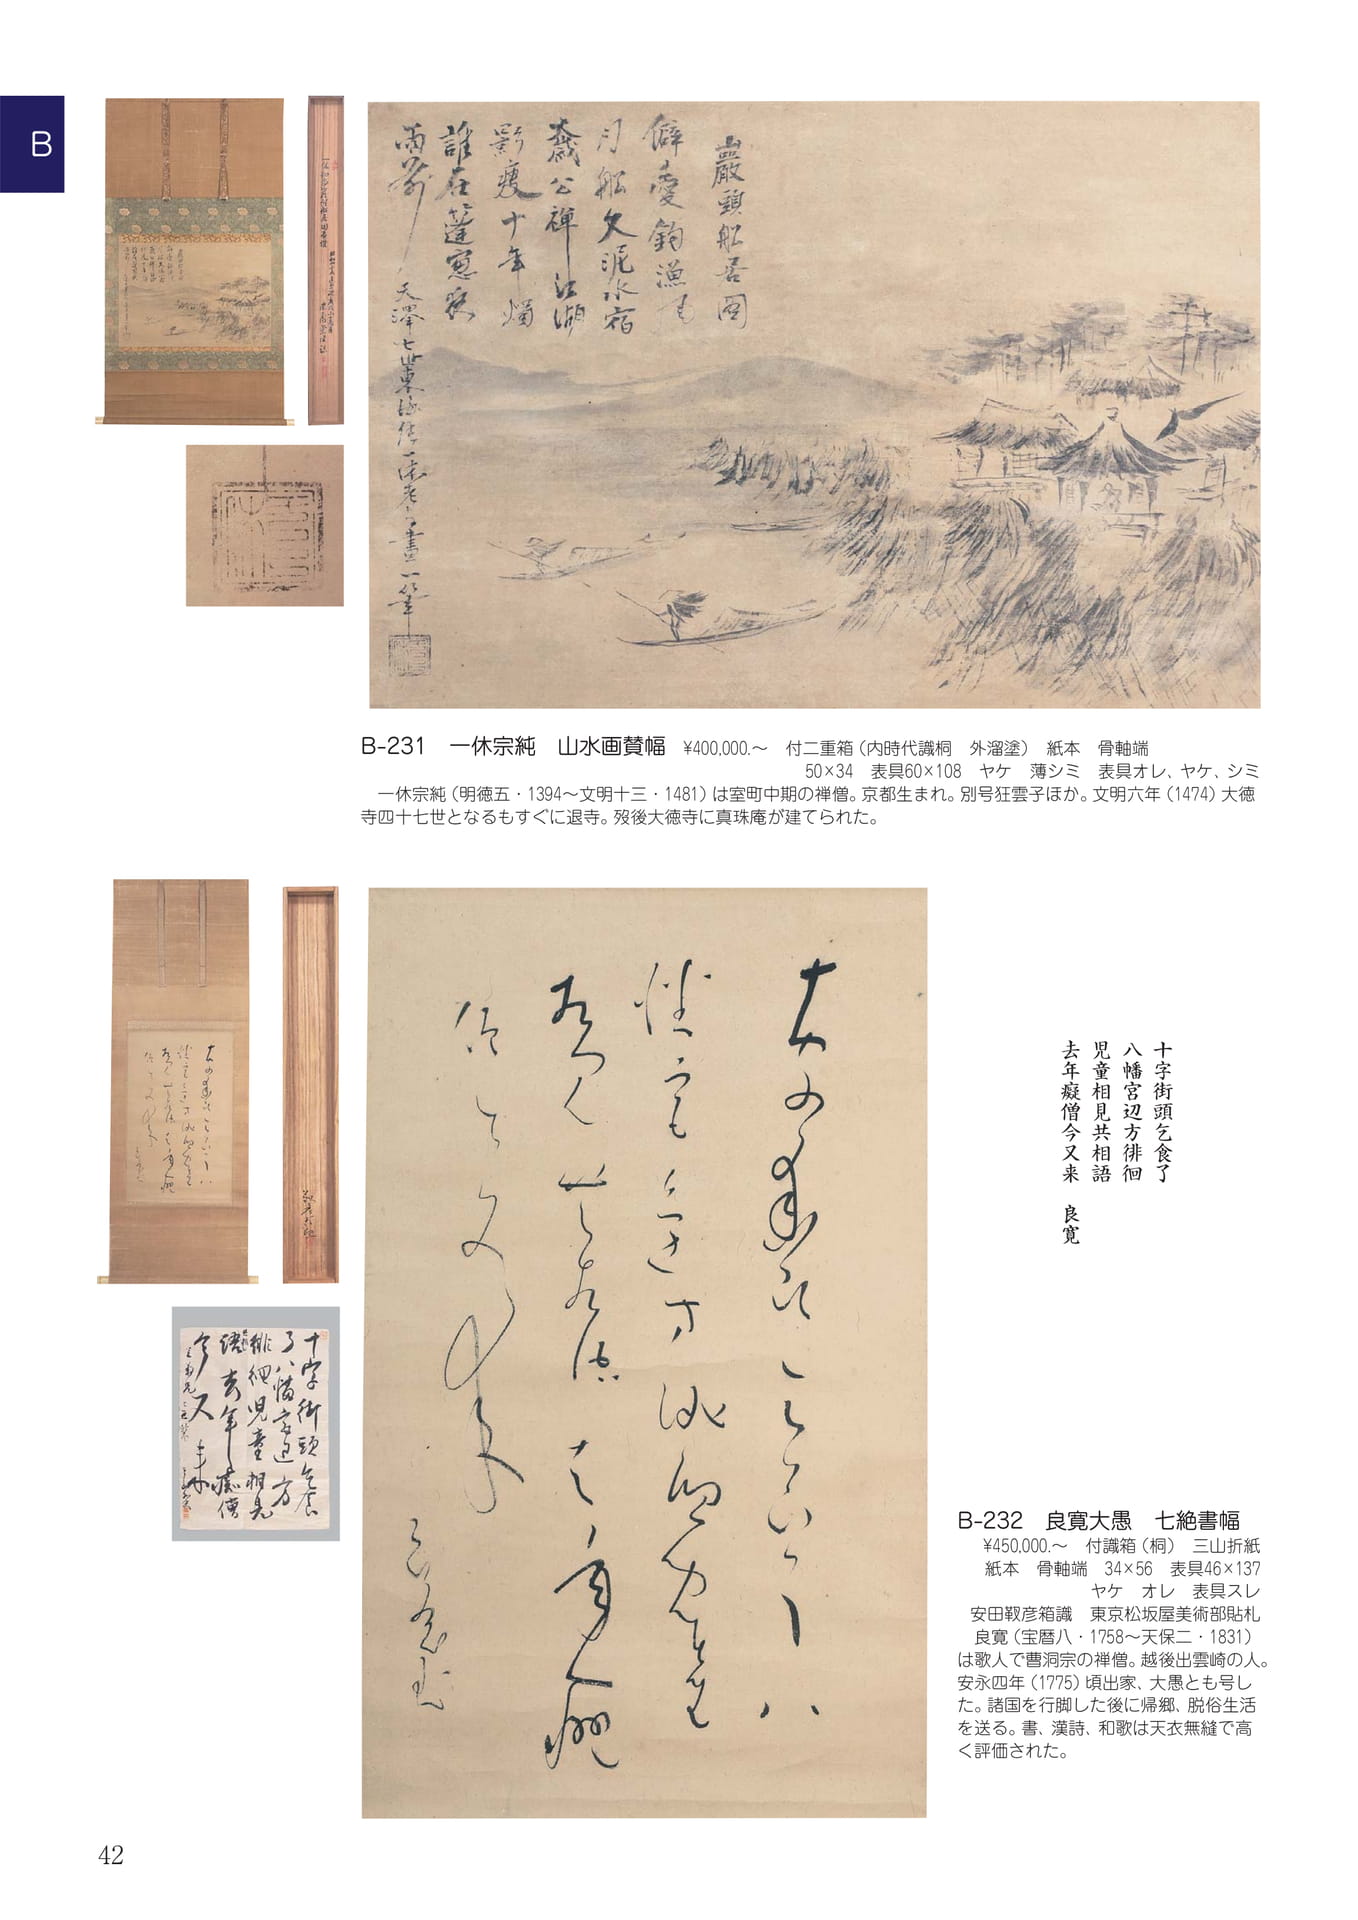 B
巖頭船居図
僻愛釣漁
月船欠泥水宿
公禅江湖
影痩十年燭
誰在蓬窓夜
雨前
天澤七世東海純一休老 画一筆
B-231　一休宗純　山水画賛幅　¥400,000.～　付二重箱（内時代識桐　外溜塗）　紙本　骨軸端
50×34　表具60×108　ヤケ　薄シミ　表具オレ、ヤケ、シミ
一休宗純（明徳五・1394～文明十三・1481）は室町中期の禅僧。京都生まれ。別号狂雲子ほか。文明六年（1474）大徳
寺四十七世となるもすぐに退寺。歿後大徳寺に真珠庵が建てられた。
十字街頭乞食了
八幡宮辺方徘徊
児童相見共相語
去年癡僧今又来　良寛
十字街頭乞食
了八幡宮辺方
徘徊児童相見
共相語去年癡僧
今又来
B-232　良寛大愚　七絶書幅
¥450,000.～　付識箱（桐）　三山折紙
紙本　骨軸端　34×56　表具46×137
ヤケ　オレ　表具スレ
安田靫彦箱識　東京松坂屋美術部貼札
良寛（宝暦八・1758～天保二・1831）
は歌人で曹洞宗の禅僧。越後出雲崎の人。
安永四年（1775）頃出家、大愚とも号し
た。諸国を行脚した後に帰郷、脱俗生活
を送る。書、漢詩、和歌は天衣無縫で高
く評価された。
42